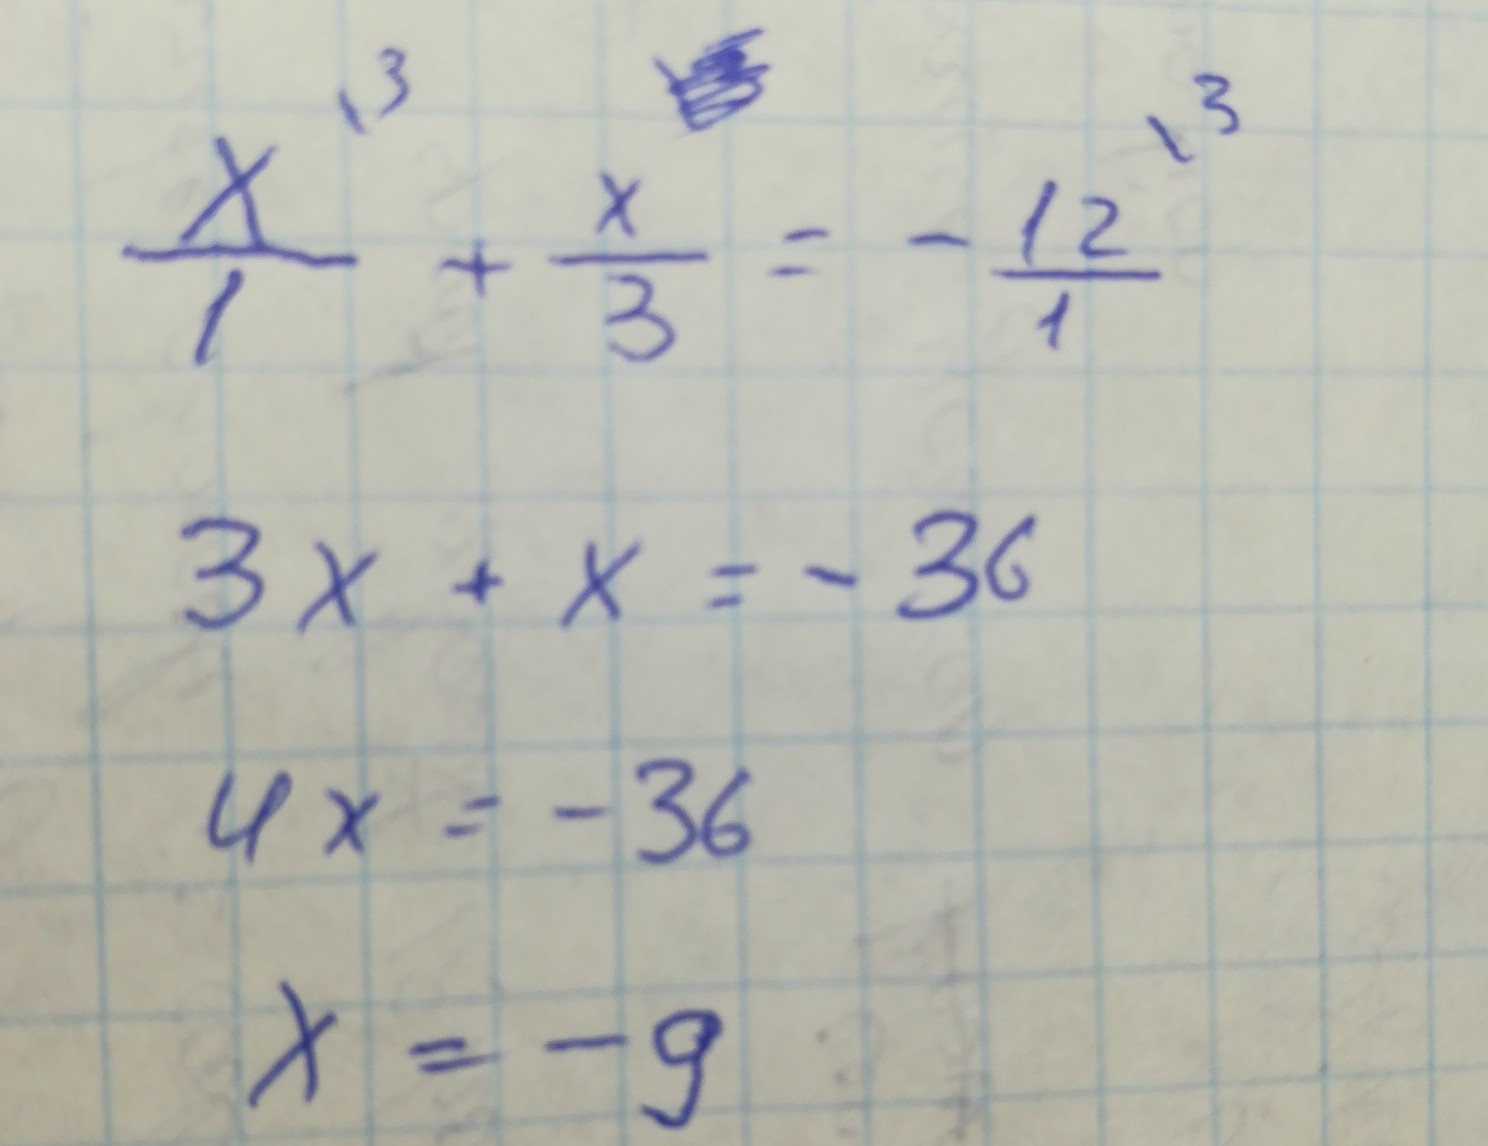 x/1 \3 + x/3 = - 12/1 \3
3x + x = - 36
4x = - 36
x = - 9